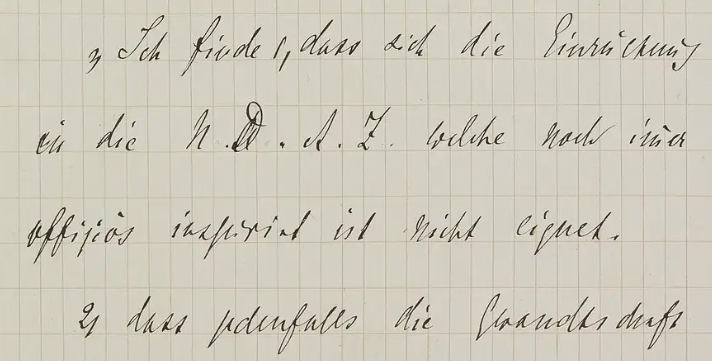 „ Ich finde 1, dass sich die Einrückung
in die N.D.A.Z. welche noch im̅er
offiziös inspirirt ist nicht eignet.
2, dass jedenfalls die Gesandtschaft